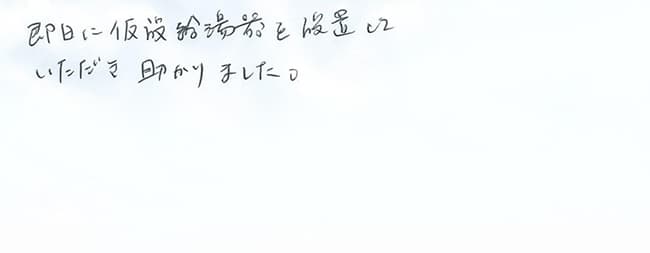 即日に仮設給湯器を設置して
いただき助かりました。